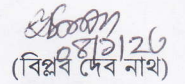 08/2/26
(বিপ্লব দেব নাথ)